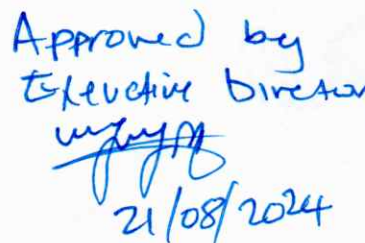 Approved by
Executive Director
21/08/2024